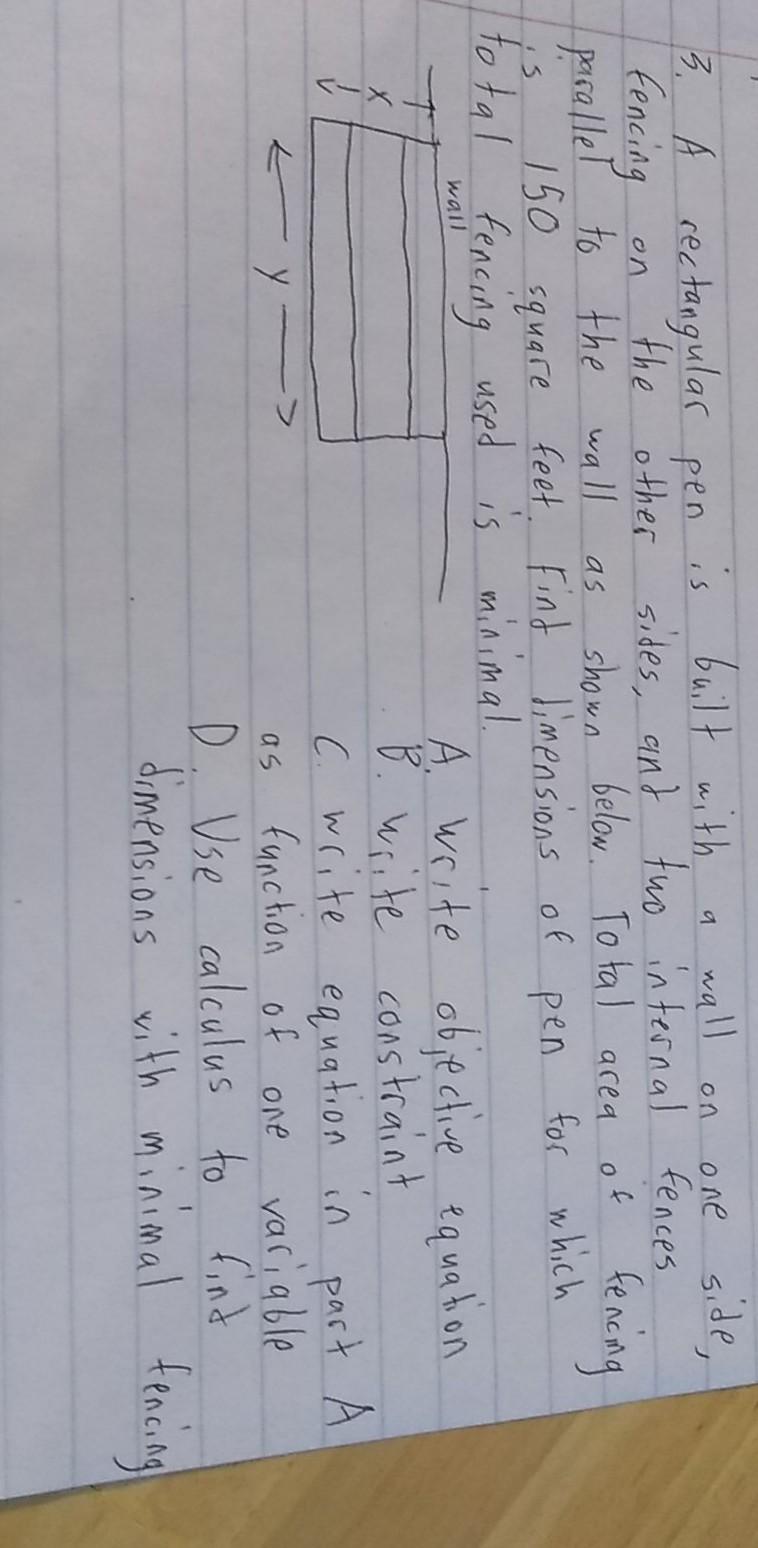 3. A rectangular pen is built with a wall on one side,
fencing on the other sides, and two internal fences
parallel to the wall as shown below. Total area of fencing
is 150 square feet. Find dimensions of pen for which
total fencing used is minimal.
wall
x
y
A. write objective equation
B. write constraint
C. write equation in part A
as function of one variable
D. Use calculus to find
dimensions with minimal fencing